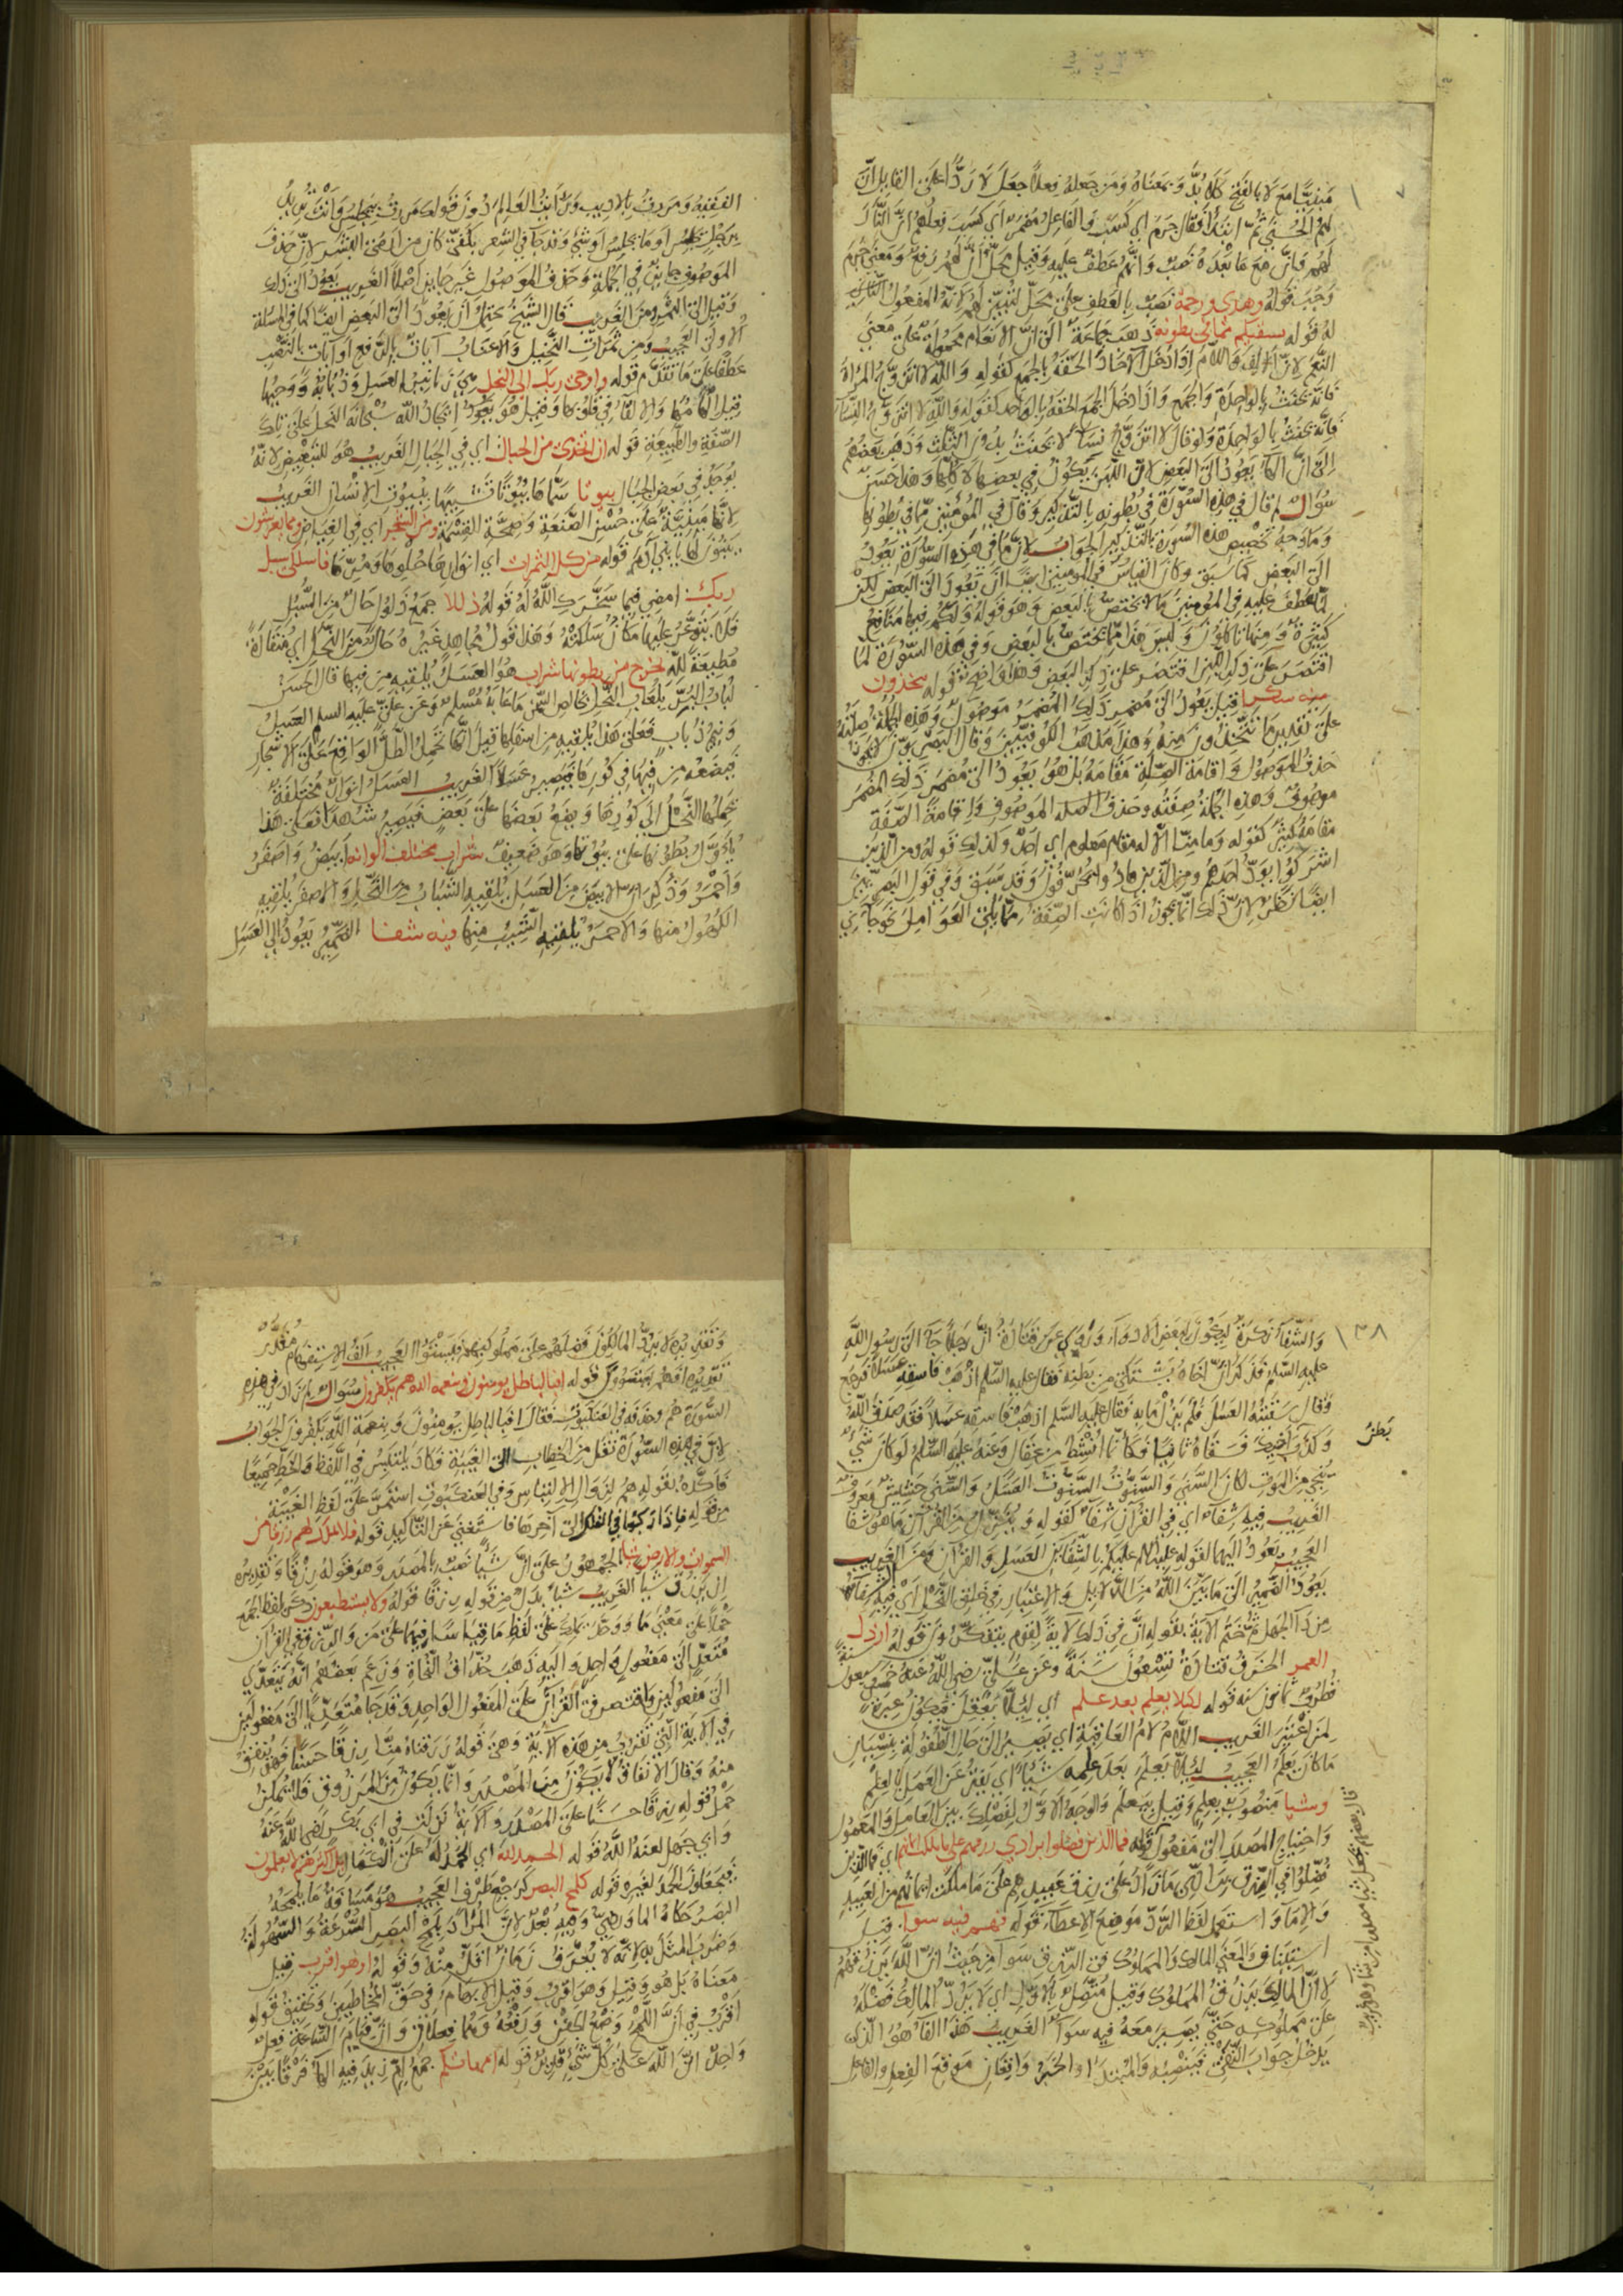 مبنيًّا مع لا بالفتح كلا بدّ وبمعناه ومن جعله فعلا جعل لا ردًّا على القايل ان
لهم الحسنى ثم ابتدا فقال جرم اي كسب والفاعل مضمر اي كسب فعلهم ان النار
لهم وانّ مع ما بعده نصب وانهم عطف عليه وقيل محل ان لهم رفع ومعنى جرم
وجب قوله وهدى ورحمة نصب بالعطف على محل لتبين لهم لانه المفعول
له قوله نسقيكم مما في بطونه ذهب جماعة الى ان الانعام محمولة على معنى
النعم لان الالف واللام اذا دخل الآحاد الحقه بالجمع كقوله والله لا اتزوج المراة
فانه يحنث بالواحدة والجمع واذا دخل الجمع الحقه بالواحد كقوله والله لا اتزوج النسا
فانه يحنث بالواحدة ولو قال لا اتزوج نسآءً لا يحنث بدون الثلث وذهب بعضهم
الى ان الهآ يعود الى البعض لان اللبن يكون في بعضها لا كلها وهذا حسن
سؤال لم قال في هذه السورة في بطونه بالتذكير وقال في المؤمنين مما في بطونها
وما وجه تخصيص هذه السورة بالتذكير الجواب لان ما في هذه السورة يعود
الى البعض كما سبق وكان القياس في المومنين ايضًا ان يعود الى البعض لكن
لما عطف عليه في المؤمنين ما لا يختص بالبعض وهو قوله ولكم فيها منافع
كثيرة ومنها تاكلون وليس هذا مما يختص بالبعض وفي هذه السورة لما
اقتصر على ذكر اللبن اقتصر على ذكر البعض وهذا واضح قوله تتخذون
منه سكرا قيل يعود الى مضمر ذلك المضمر موصول وهذه الجملة صلته
على تقدير ما تتخذون منه وهذا مذهب الكوفيين وقال البصريون لا يجوز
حذف الموصول واقامة الصلة مقامه بل هو يعود الى مضمر ذلك المضمر
موصوف وهذه الجملة صفته وحذف الموصوف واقامة الصفة
مقامه كثير كقوله وما منا الا له مقام معلوم اي احد وكذلك قوله ومن الذين
اشركوا يود احدهم ومن الذين هادوا يحرفون وقد سبق وفي قول البصريين
ايضًا نظر لان ذلك انما يجوز اذا كانت الصفة مما يلي العوامل نحو جآءني
الفقيه ومررت بالاديب ورايت العالم دون قولك مررت بيجلس وانت تريد
برجل يجلس او ما يجلس او شئ وقد جآ في الشعر بكفي كان من ارمى البشر لان حذف
الموصوف جايز في الجملة وحذف الموصول غير جايز اصلا الغريب يعود الى ذلك
وقيل الى الثمر ومن الغريب قال الشيخ يحتمل ان يعود الى البعض ايضًا كما في المسئلة
الاولى العجيب ومن ثمرات النخيل والاعناب آيات بالرفع او آيات بالنصب
عطفًا على ما تقدم قوله واوحى ربك الى النحل هي زنابير العسل وذبابه ووحيها
قيل الهامها والالقآ في قلوبها وقيل هو ايجاد الله سبحانه النحل على تلك
الصفة والطبيعة قوله ان اتخذي من الجبال اي في الجبال الغريب هو للتبعيض لانه
يوجد في بعض الجبال بيوتا سماها بيوتًا تشبيهًا ببيوت الانسان الغريب
لانها مبنية على حسن الصنعة وصحة القسمة ومن الشجر اي في الغياض ومما يعرشون
يبنون لها بني آدم قوله من كل الثمرات اي انوارها حلوها ومرها فاسلكي سبل
ربك امضي فيما سخرك الله له قوله ذللا جمع ذلول حال من السبل
فلا يتوعر عليها مكان سلكته وهذا قول مجاهد غيره حال من النحل اي منقادة
مطيعة لله يخرج من بطونها شراب هو العسل يلقيه من فيها قال الحسن
لباب البر بلعاب النحل بخالص السمن ما عابه مسلم وعن علي عليه السلم العسل
ونيم ذباب فعلى هذا يلقيه من اسفلها قيل انها تحمل الطل الواقع على الاشجار
فيضعه من فيها في كورها فيصير عسلا الغريب العسل انوار مختلفة
يحملها النحل الى كورها ويضع بعضها على بعض فيصير شهدًا فعلى هذا
يأول بطونها على بيوتها وهو ضعيف شراب مختلف الوانه ابيض واصفر
واحمر وذكر ان الابيض من العسل يلقيه الشباب من النحل والاصفر يلقيه
الكهول منها والاحمر يلقيه الشيب منها فيه شفا الضمير يعود الى العسل
١٣٨
والشفآ نكرة ليكون لبعض الادوآء وروي عن قتادة ان رجلا جآ الى رسول الله
عليه السلم فذكر ان اخاه يشتكي من بطنه فقال عليه السلم اذهب فاسقه عسلا فرجع
وقال سقيته العسل فلم يزل ما به فقال عليه السلم اذهب فاسقه عسلا فقد صدق الله
وكذب بطن اخيك فسقاه ثانيًا فكانما انشط من عقال وعنه عليه السلم لو كان شئ
ينجي من الموت لكان السنى والسنوت السنوت العسل والسنى حشيش معروف
الغريب فيه شفآء اي في القرآن شفآ كقوله وننزل من القرآن ما هو شفا
العجيب يعود اليهما لقوله عليه السلم عليكم بالشفآين العسل والقرآن ومن الغريب
يعود الضمير الى ما بين الله من الدلايل والاعتبار في خلق النحل اي فيه شفآء
من دآ الجهل ثم ختم الآية بقوله ان في ذلك لاية لقوم يتفكرون قوله ارذل
العمر الخرف قتادة تسعون سنة وعن علي رضي الله عنه خمس وسبعون سنة
قطرب ثمانون سنه قوله لكيلا يعلم بعد علم اي ليلا يعقل فيكون عبرة
لمن اعتبر الغريب اللام لام العاقبة اي يصير الى حال الطفولة بنسيان
ما كان يعلم العجيب ليلا يعلم بعد علمه شيا اي يفتر عن العمل بالعلم
وشيا منصوب بعلم وقيل بيعلم والوجه الاول لفصلك بين العامل والمعمول
واحتياج المصدر الى مفعول قوله فما الذين فضلوا برادي رزقهم على ما ملكت ايمانهم اي فما الذين
فضلوا في الرزق برادي ما زاد على رزق عبيدهم على ما ملكت ايمانهم من العبيد
والامآء واستعمل لفظ الرد موضع الاعطآء قوله فهم فيه سوا قيل
استيناف والمعنى المالك والمملوك في الرزق سوآ من حيث ان الله يرزقهم
لا ان المالك يرزق المملوك وقيل متصل بالاول اي لا يرد المالك فضله
على مملوكه حتى يصير معه فيه سوآ الغريب هذا الفآ هو الذي
يدخل جواب النفي فينصبه والمبتدا والخبر واقعان موقع الفعل والفاعل
وتقديره لا يرد المالكون فضلهم على مملوكيهم فيستووا العجيب الف الاستفهام مقدر
تقديره افهم يستوون قوله افبالباطل يومنون وبنعمة الله هم يكفرون سوال لم زاد في هذه
السورة هم وحذفه في العنكبوت فقال افبالباطل يومنون وبنعمة الله يكفرون الجواب
لان في هذه السورة نقل من الخطاب الى الغيبة فكاد يلتبس في اللفظ والخط جميعًا
فاكده بقوله هم لزوال الالتباس وفي العنكبوت استمر على لفظ الغيبة
من قوله فاذا ركبوا في الفلك الى آخرها فاستغنى عن التاكيد قوله ما لا يملك لهم رزقا من
السموات والارض شيا الجمهور على ان شيئًا نصب بالمصدر وهو قوله رزقًا وتقديره
ان يرزق شيا الغريب شيا بدل من قوله رزقًا قوله ولا يستطيعون ذكر بلفظ الجمع
حملا على معنى ما ووحد يملك على لفظ ما قياسًا فيهما على من والرزق في القرآن
متعد الى مفعول واحد واليه ذهب حذاق النحاة وزعم بعضهم انه يتعدى
الى مفعولين واقتصر في القرآن على المفعول الواحد وقد جا متعديًا الى مفعولين
في الاية التي تقرب من هذه الآية وهي قوله رزقناه منا رزقًا حسنًا فهو ينفق
منه وقال الانفاق لا يكون من المصدر وانما يكون من المرزوق فلا يمكن
حمل قوله رزقًا حسنًا على المصدر والآية نزلت في ابي بكر رضي الله عنه
وابي جهل لعنه الله قوله الحمد لله اي الحمد له على الكمال بل اكثرهم لا يعلمون
فيجعلون الحمد لغيره قوله كلمح البصر كرجع طرف العجيب هو مسافة ما يلمحه
البصر حكاه الماوردي وفيه بعد لان المراد بلمح البصر السرعة والسهولة
وضرب المثل به لانه لا يعرف زمان اقل منه وقوله او هو اقرب قيل
معناه بل هو وقيل وهو اقرب وقيل الابهام في حق المخاطبين وتحقيق قوله
اقرب في ان اللمح وضع الجفن ورفعه وهما فعلان وان قيام الساعة فعل
واحد ان الله على كل شئ قدير قوله امهاتكم جمع ام زيد فيه الهآ فرقًا بين